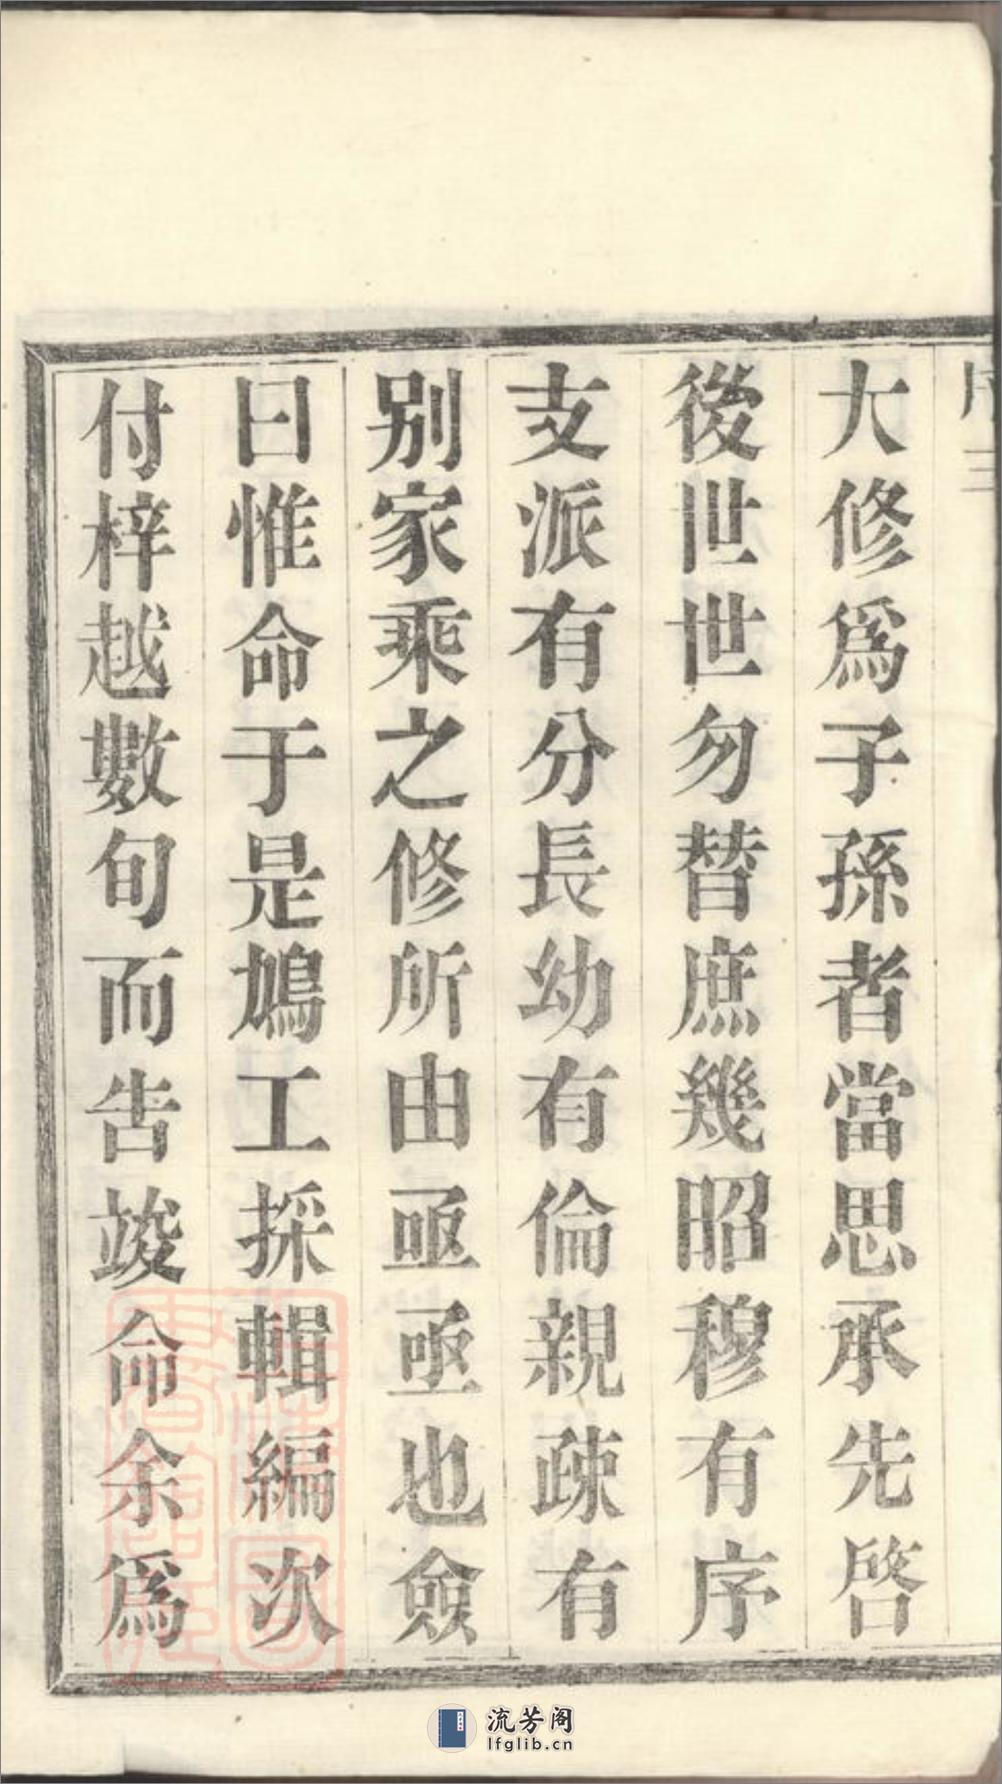 序 三
大修爲子孫者當思承先啓
後世世勿替庶幾昭穆有序
支派有分長幼有倫親疎有
别家乘之修所由亟亟也僉
曰惟命于是鳩工採輯編次
付梓越數旬而告竣命余爲
流芳阁
lfglib.cn